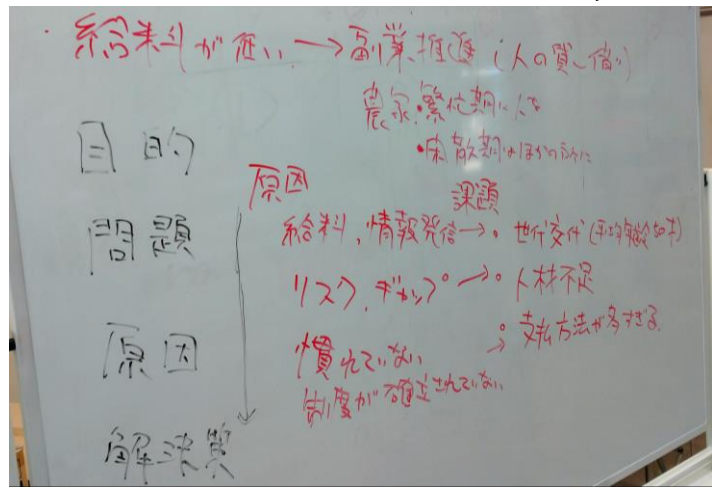 ・給料が低い→副業推進(人の貸し借り)
農家・繁忙期に人を
・閑散期はほかの
目的
原因
課題
問題
給料、情報発信→・世代交代(平均年齢67才)
リスク、ギャップ→・人材不足
原因
慣れていない
→・支払方法が多すぎる
制度が確立されていない
解決策